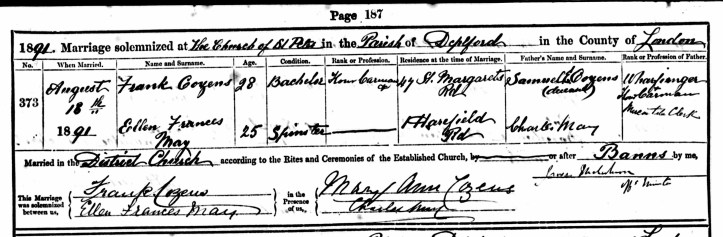 Page 187
1891. Marriage solemnized at The Church of St Peter in the Parish of Deptford in the County of London
No. When Married. Name and Surname. Age. Condition. Rank or Profession. Residence at the time of Marriage. Father's Name and Surname. Rank or Profession of Father.
373 August 18th 1891 Frank Cozens 28 Bachelor Carman 47 St. Margarets Rd Samuel Cozens (deceased) Wharfinger Carman
Ellen Frances May 25 Spinster 1 Harefield Rd Charles May Mercantile Clerk
Married in the District Church according to the Rites and Ceremonies of the Established Church, by or after Banns by me,
This Marriage was solemnized between us, Frank Cozens Ellen Frances May in the Presence of us, Mary Ann Cozens Charles May